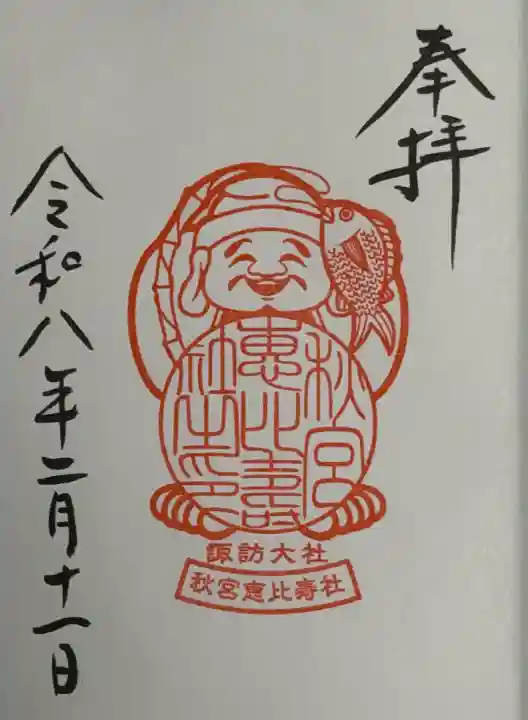 奉拝
秋宮
恵比寿
社之印
諏訪大社
秋宮恵比壽社
令和八年二月十一日